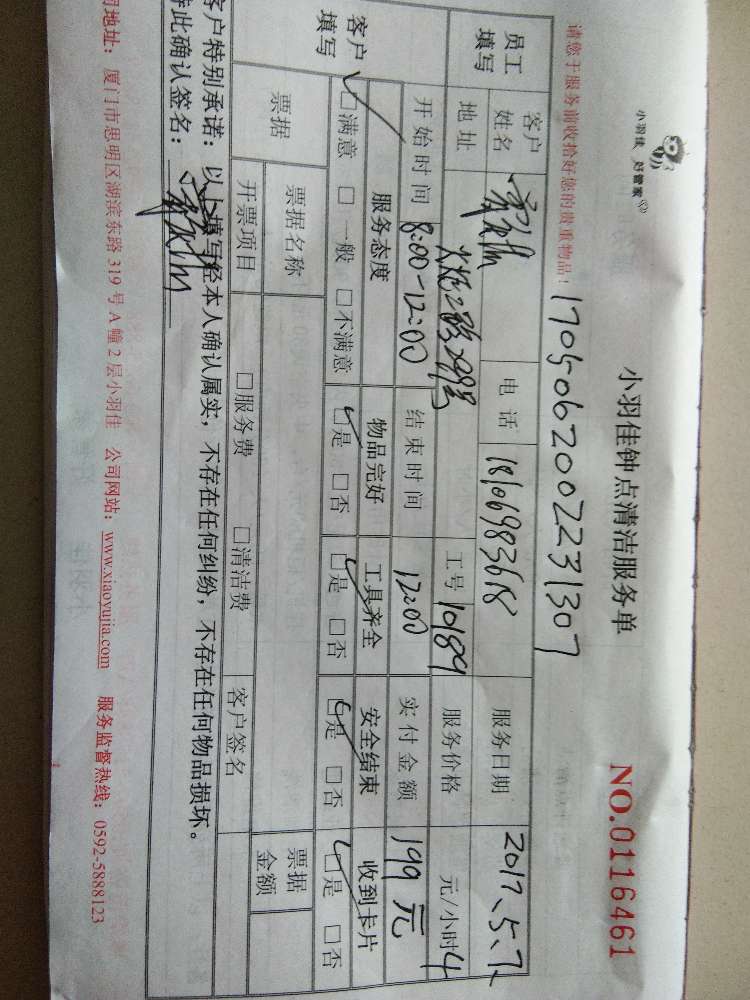 小羽佳 好管家
小羽佳钟点清洁服务单
NO.0116461
请您于服务前收拾好您的贵重物品！
170506200223130７
员工填写
客户姓名
电话 18106983618
服务日期 2017.5.7
地址 299号
工号 10189
服务价格 元/小时 4
开始时间 8:00-12:00
结束时间 12:00
实付金额 199元
客户填写
服务态度 物品完好 工具齐全 安全结束 收到卡片
□满意 □一般 □不满意 □是 □否 □是 □否 □是 □否 □是 □否
票据
票据名称
票据金额
开票项目 □服务费 □清洁费 客户签名
客户特别承诺：以上填写经本人确认属实，不存在任何纠纷，不存在任何物品损坏。
特此确认签名：
司地址：厦门市思明区湖滨东路319号A幢2层小羽佳 公司网站：www.xiaoyujia.com 服务监督热线：0592-5888123